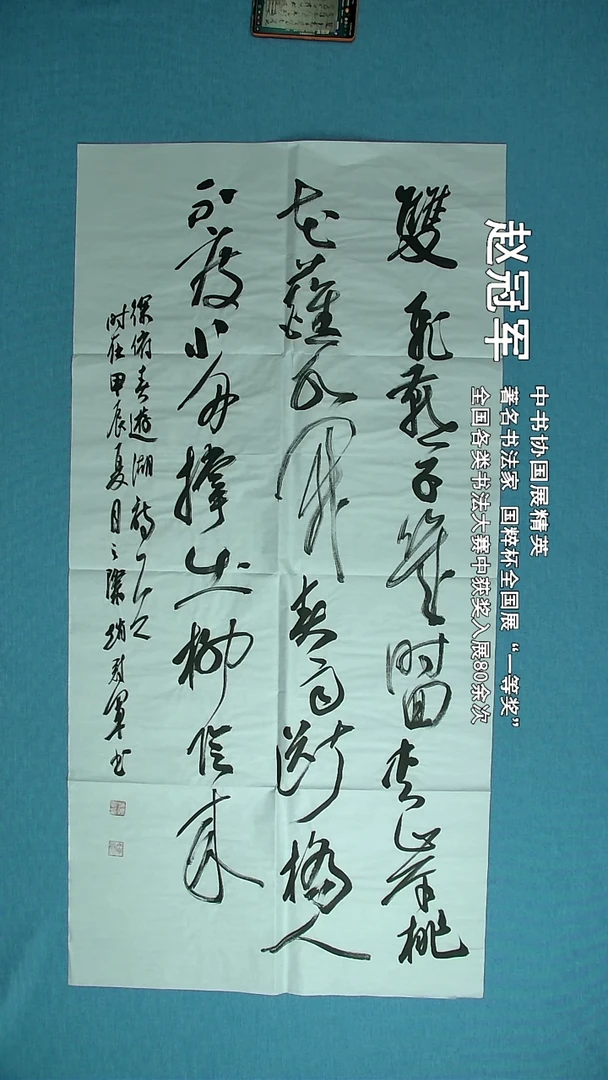 雙飛燕子幾时回夾岸桃
花蘸水開春雨斷橋人
不度小舟撑出柳陰來
徐俯春遊湖詩一首
时在甲辰夏日之際趙冠軍书
赵冠军
中书协国展精英
著名书法家 国粹杯全国展“一等奖”
全国各类书法大赛中获奖入展80余次